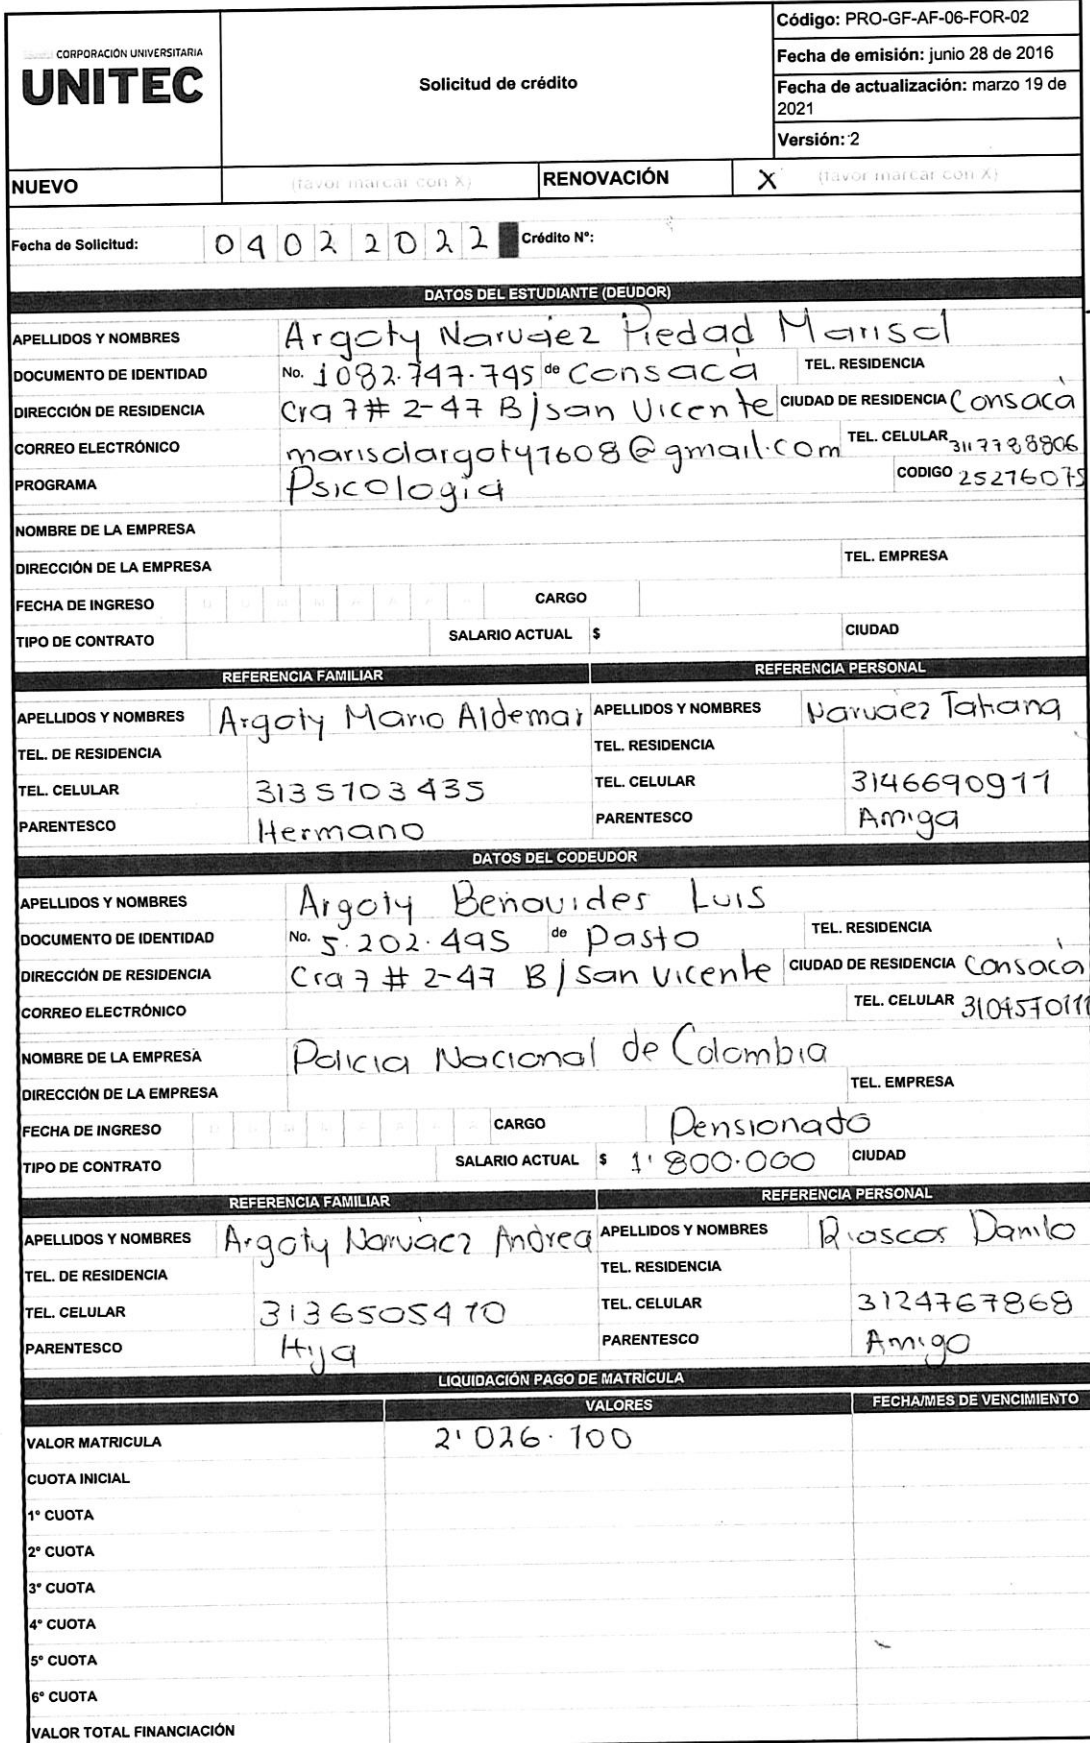 CORPORACIÓN UNIVERSITARIA
UNITEC
Solicitud de crédito
Código: PRO-GF-AF-06-FOR-02
Fecha de emisión: junio 28 de 2016
Fecha de actualización: marzo 19 de 2021
Versión: 2
NUEVO (favor marcar con X) RENOVACIÓN X (favor marcar con X)
Fecha de Solicitud: 04022022 Crédito N°:
DATOS DEL ESTUDIANTE (DEUDOR)
APELLIDOS Y NOMBRES Argoty Narvaez Piedad Marisol
DOCUMENTO DE IDENTIDAD No. 1082.747.745 de Consacá TEL. RESIDENCIA
DIRECCIÓN DE RESIDENCIA Cra 7 # 2-47 B/san Vicente CIUDAD DE RESIDENCIA Consacà
CORREO ELECTRÓNICO marisolargoty1608@gmail.com TEL. CELULAR 3117788806
PROGRAMA Psicología CODIGO 25276075
NOMBRE DE LA EMPRESA
DIRECCIÓN DE LA EMPRESA TEL. EMPRESA
FECHA DE INGRESO D D M M A A A A CARGO
TIPO DE CONTRATO SALARIO ACTUAL $ CIUDAD
REFERENCIA FAMILIAR REFERENCIA PERSONAL
APELLIDOS Y NOMBRES Argoty Mario Aldemar APELLIDOS Y NOMBRES Narvaez Tatiana
TEL. DE RESIDENCIA TEL. RESIDENCIA
TEL. CELULAR 3135703435 TEL. CELULAR 3146690911
PARENTESCO Hermano PARENTESCO Amiga
DATOS DEL CODEUDOR
APELLIDOS Y NOMBRES Argoty Benavides Luis
DOCUMENTO DE IDENTIDAD No. 5.202.495 de Pasto TEL. RESIDENCIA
DIRECCIÓN DE RESIDENCIA Cra 7 # 2-47 B/San Vicente CIUDAD DE RESIDENCIA Consacà
CORREO ELECTRÓNICO TEL. CELULAR 3104570111
NOMBRE DE LA EMPRESA Policia Nacional de Colombia
DIRECCIÓN DE LA EMPRESA TEL. EMPRESA
FECHA DE INGRESO D D M M A A A A CARGO Pensionado
TIPO DE CONTRATO SALARIO ACTUAL $ 1'800.000 CIUDAD
REFERENCIA FAMILIAR REFERENCIA PERSONAL
APELLIDOS Y NOMBRES Argoty Narvàez Andrea APELLIDOS Y NOMBRES Riascos Danilo
TEL. DE RESIDENCIA TEL. RESIDENCIA
TEL. CELULAR 3136505470 TEL. CELULAR 3124767868
PARENTESCO Hija PARENTESCO Amigo
LIQUIDACIÓN PAGO DE MATRÍCULA
VALORES FECHA/MES DE VENCIMIENTO
VALOR MATRICULA 2'026.100
CUOTA INICIAL
1° CUOTA
2° CUOTA
3° CUOTA
4° CUOTA
5° CUOTA
6° CUOTA
VALOR TOTAL FINANCIACIÓN